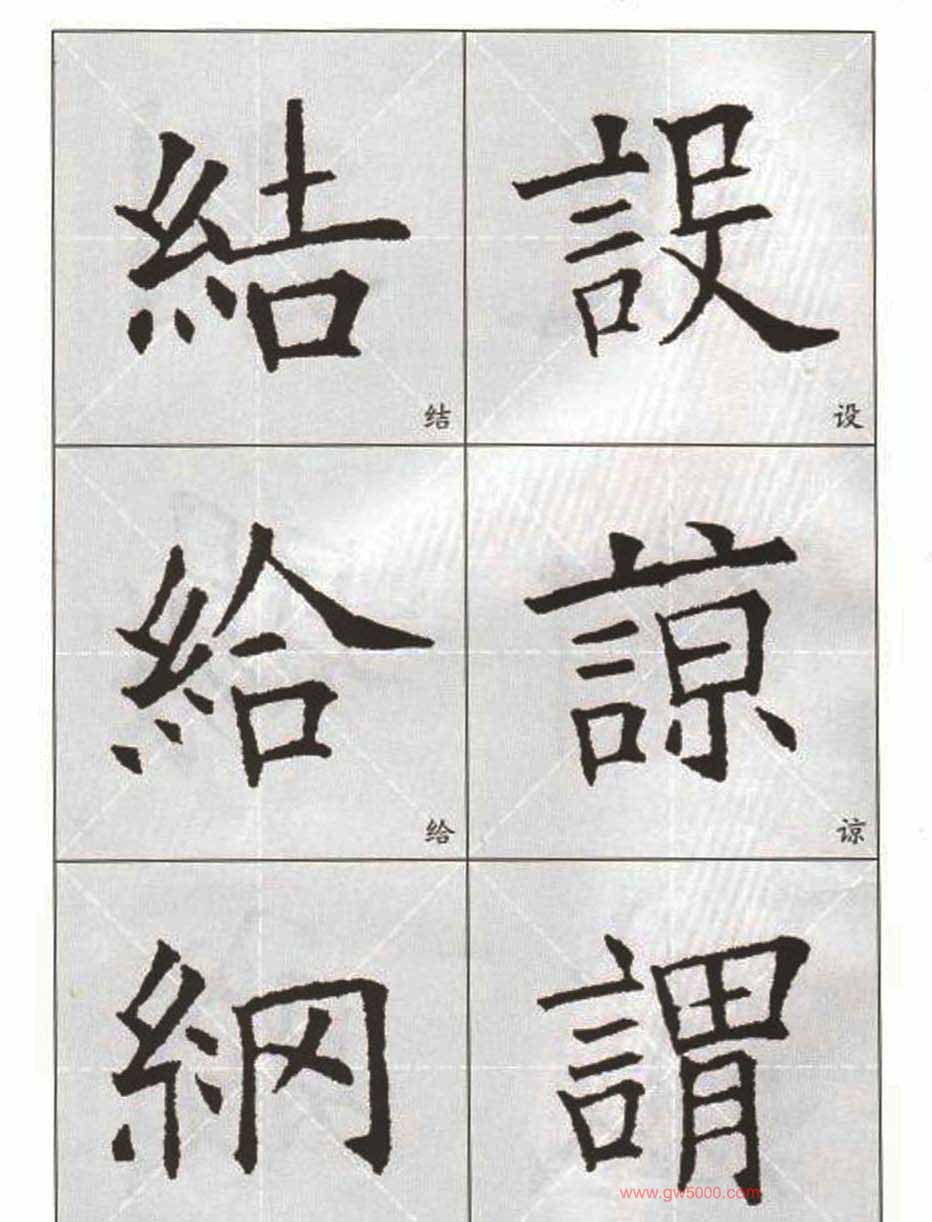 結 設
结 设
給 諒
给 谅
䋄 謂
www.gw5000.com